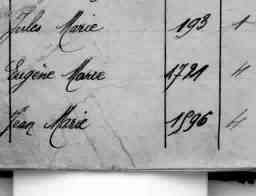 Jules Marie 193 1
Eugène Marie 1721 4
Jean Marie 1596 4